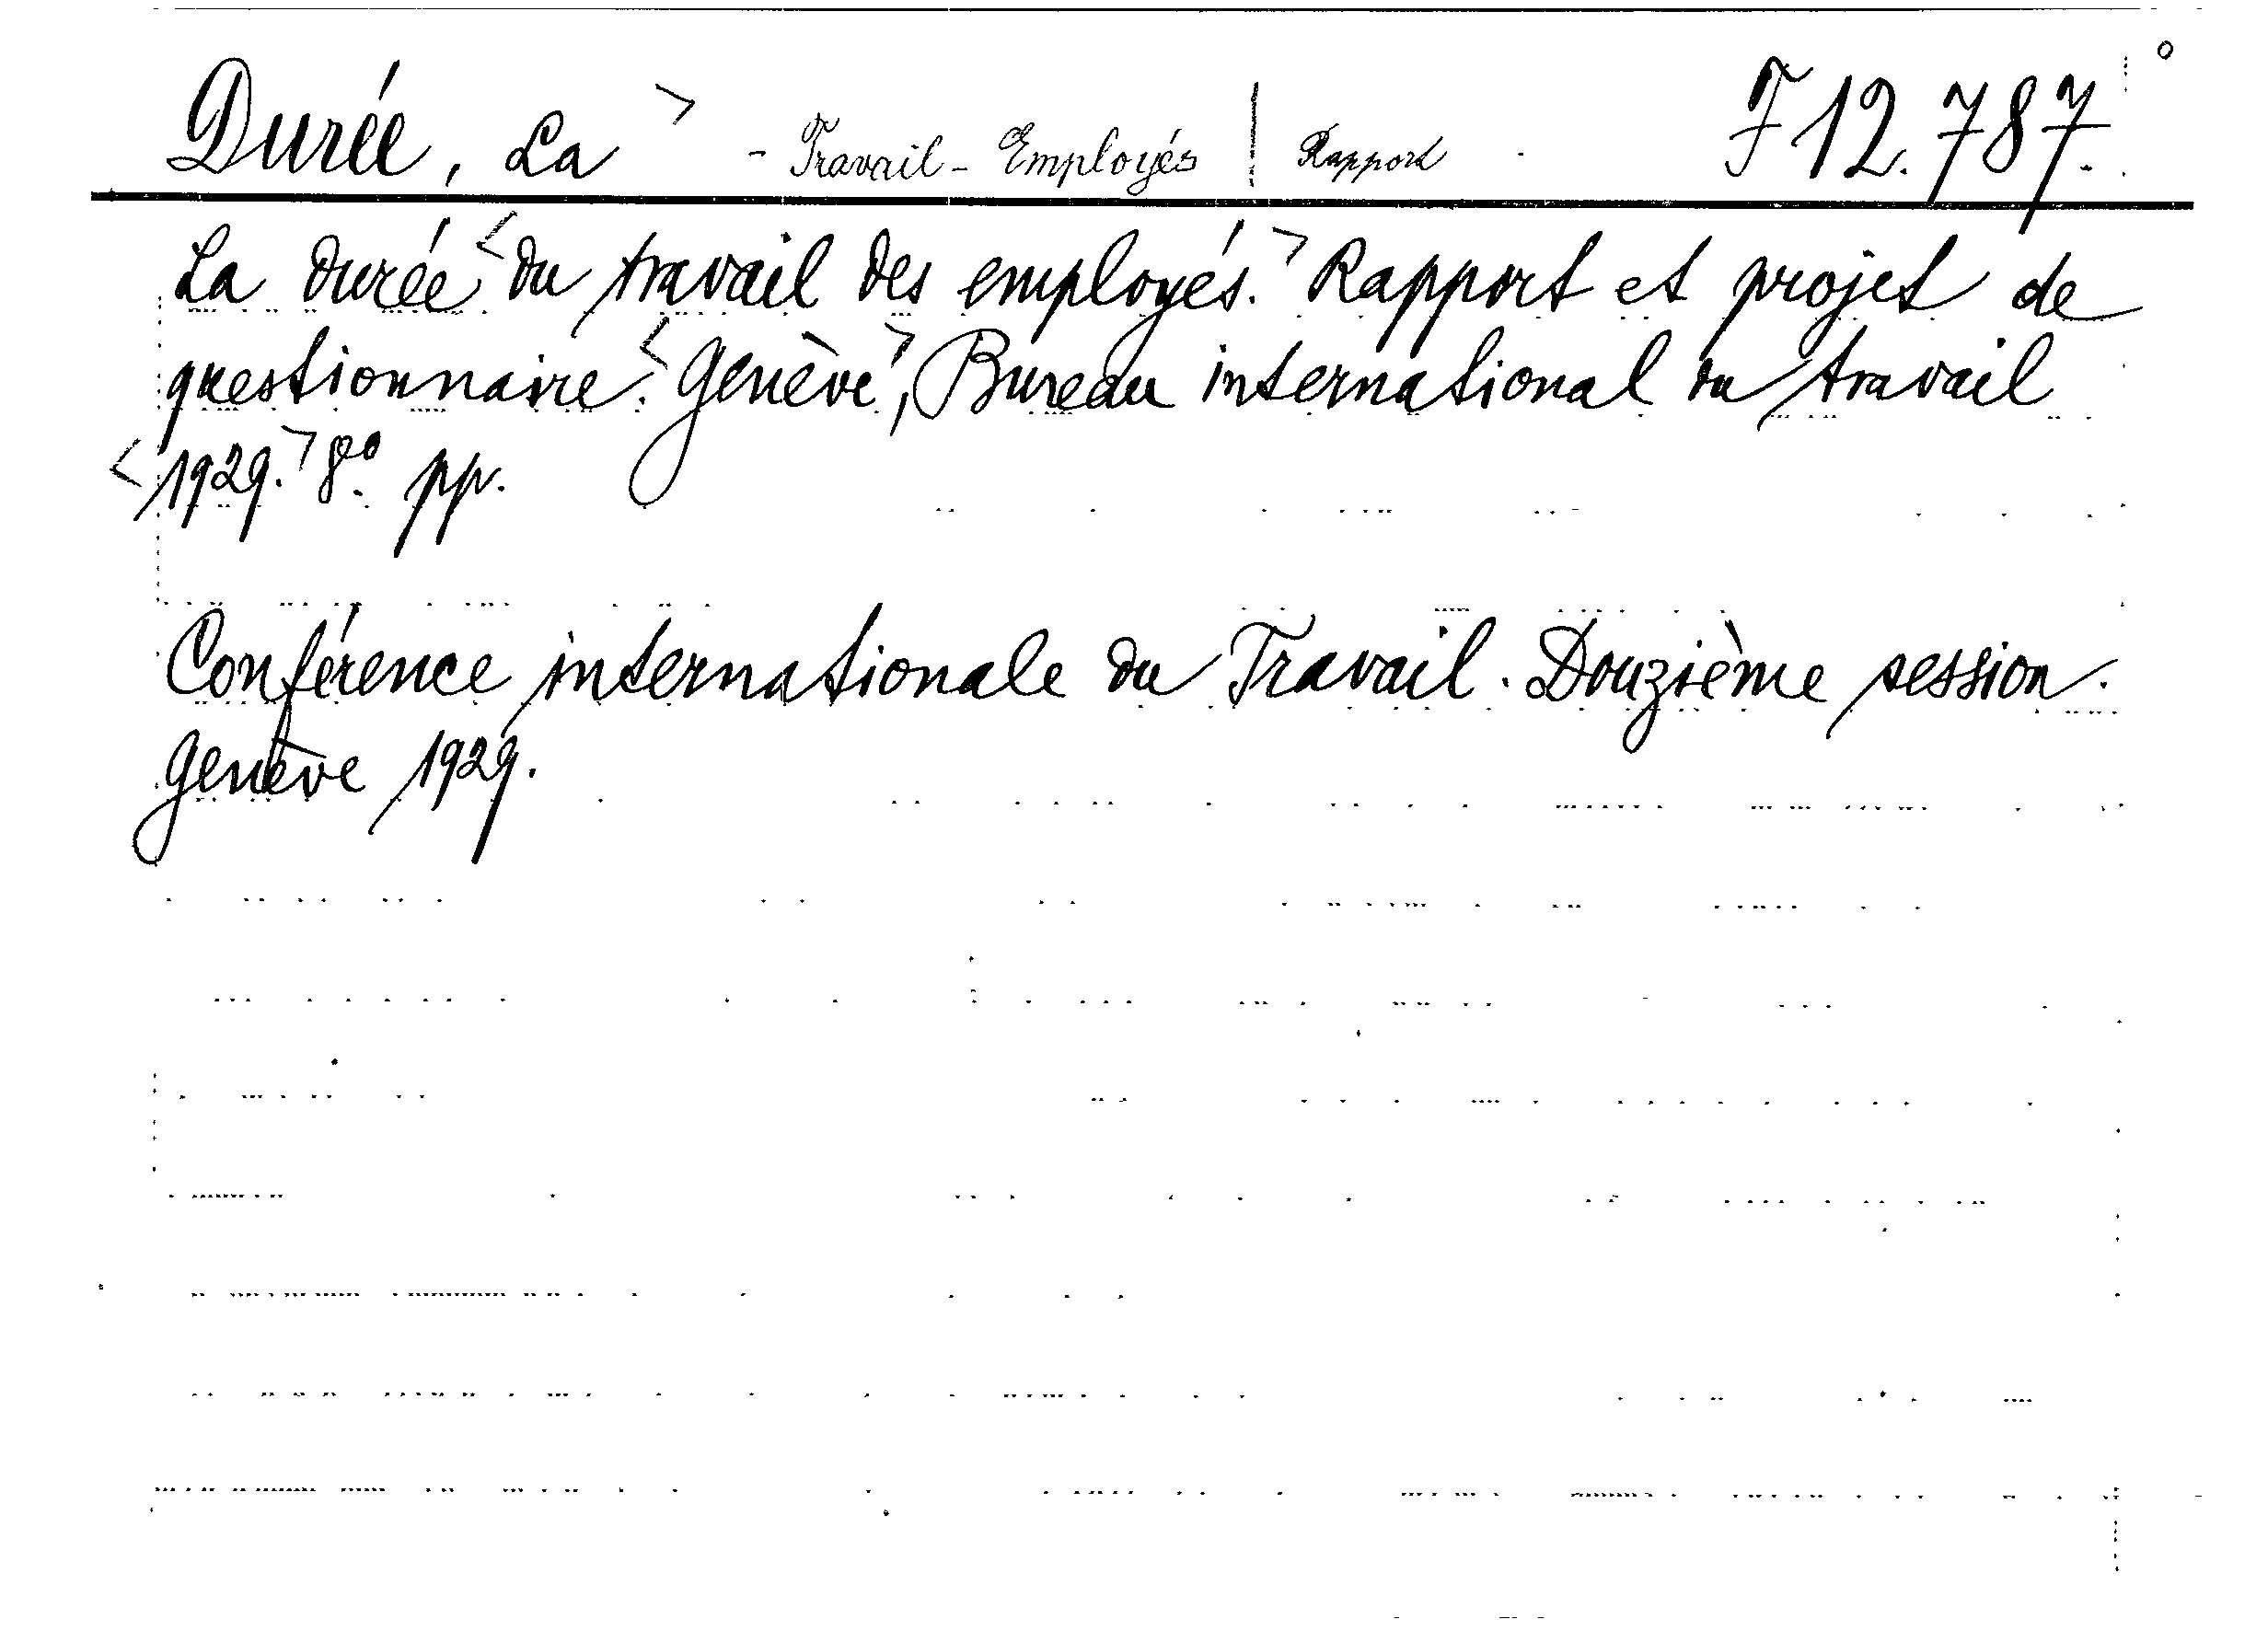 Durée, La > - Travail - Employés | Rapport F 12.787.
La durée < du travail des employés. > Rapport et projet de
questionnaire. < Genève >, Bureau international du travail
< 1929. > 8º. pp.
Conférence internationale du Travail. Douzième session.
Genève 1929.